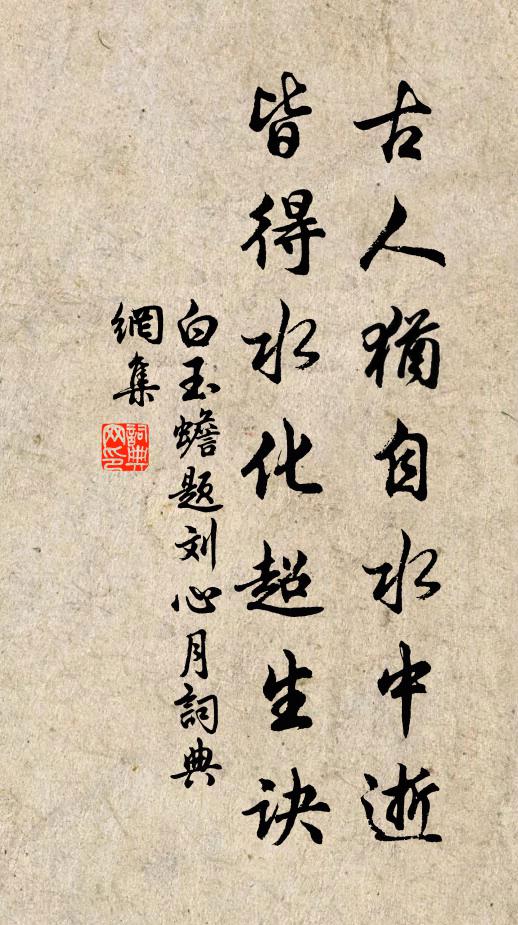 古人猶自水中逝
皆得水化超生诀
白玉蟾题刘心月詞典
網集
詞典
网印